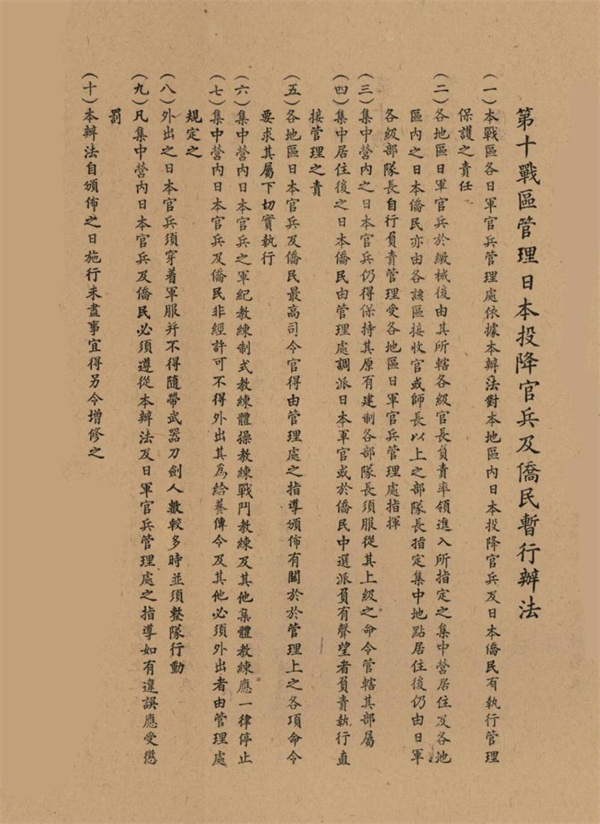 第十戰區管理日本投降官兵及僑民暫行辦法
（一）本戰區各日軍官兵管理處依據本辦法對本地區內日本投降官兵及日本僑民有執行管理
保護之責任
（二）各地區日軍官兵於繳械後由其所轄各級官長負責率領進入所指定之集中營居住及各地
區內之日本僑民亦由各該區接收官或師長以上之部隊長指定集中地點居住後仍由日軍
各級部隊長自行負責管理受各地區日軍官兵管理處指揮
（三）集中營內之日本官兵仍得保持其原有建制各部隊長須服從其上級之命令管轄其部屬
（四）集中居住後之日本僑民由管理處調派日本軍官或於僑民中選派員有聲望者負責執行直
接管理之責
（五）各地區日本官兵及僑民最高司令官得由管理處之指導頒佈有關於於管理上之各項命令
要求其屬下切實執行
（六）集中營內日本官兵之軍紀教練制式教練體操教練戰鬥教練及其他集體教練應一律停止
（七）集中營內日本官兵及僑民非經許可不得外出其為給養傳令及其他必須外出者由管理處
規定之
（八）外出之日本官兵須穿着軍服并不得隨帶武器刀劍人數較多時並須整隊行動
（九）凡集中營內日本官兵及僑民必須遵從本辦法及日軍官兵管理處之指導如有違誤應受懲
罰
（十）本辦法自頒佈之日施行未盡事宜得另令增修之